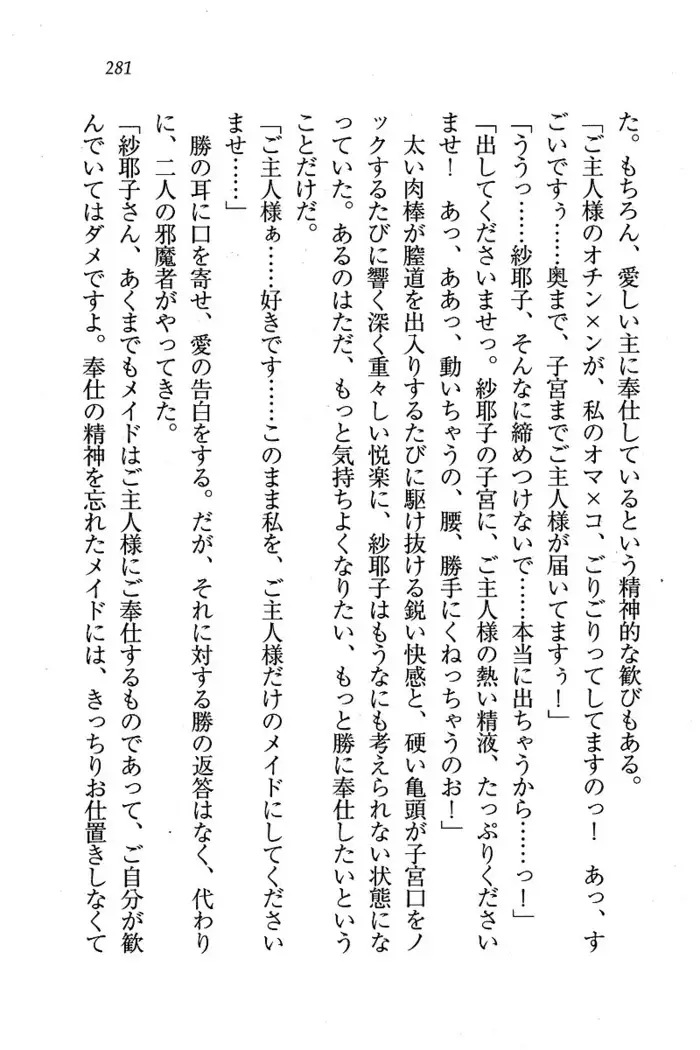 281
た。もちろん、愛しい主に奉仕しているという精神的な歓びもある。
「ご主人様のオチン×ンが、私のオマ×コ、ごりごりってしてますのっ！　あっ、す
ごいですぅ……奥まで、子宮までご主人様が届いてますぅ！」
「ううっ……紗耶子、そんなに締めつけないで……本当に出ちゃうから……っ！」
「出してくださいませっ。紗耶子の子宮に、ご主人様の熱い精液、たっぷりください
ませ！　あっ、ああっ、動いちゃうの、腰、勝手にくねっちゃうのお！」
　太い肉棒が膣道を出入りするたびに駆け抜ける鋭い快感と、硬い亀頭が子宮口をノ
ックするたびに響く深く重々しい悦楽に、紗耶子はもうなにも考えられない状態にな
っていた。あるのはただ、もっと気持ちよくなりたい、もっと勝に奉仕したいという
ことだけだ。
「ご主人様ぁ……好きです……このまま私を、ご主人様だけのメイドにしてください
ませ……」
　勝の耳に口を寄せ、愛の告白をする。だが、それに対する勝の返答はなく、代わり
に、二人の邪魔者がやってきた。
「紗耶子さん、あくまでもメイドはご主人様にご奉仕するものであって、ご自分が歓
んでいてはダメですよ。奉仕の精神を忘れたメイドには、きっちりお仕置きしなくて